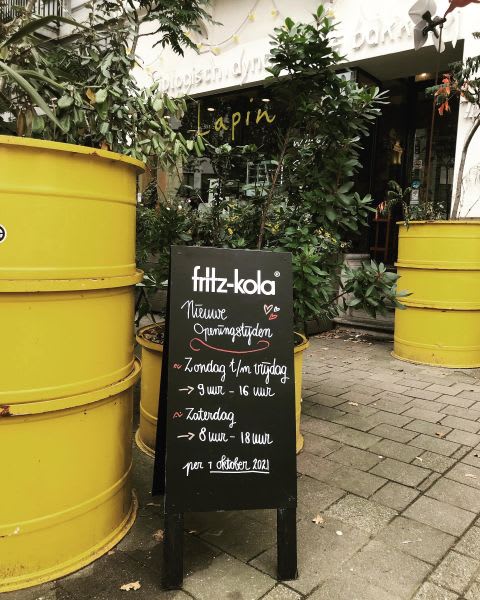 bakker
Lapin
fritz-kola®
Nieuwe
Openingstijden
~ Zondag t/m vrijdag
→ 9 uur - 16 uur
~ Zaterdag
→ 8 uur - 18 uur
per 1 oktober 2021